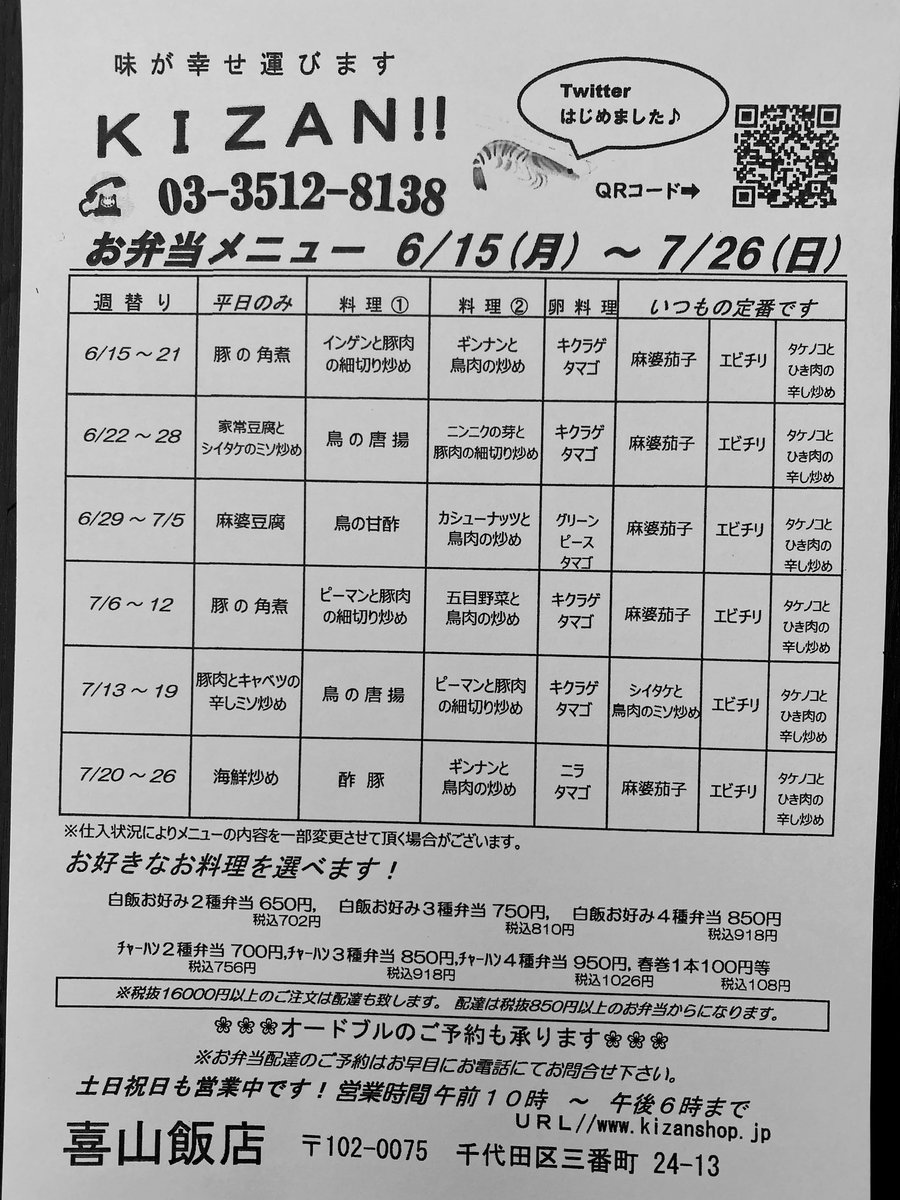 味が幸せ運びます
KIZAN!!
Twitter
はじめました♪
QRコード➡
☎ 03-3512-8138
お弁当メニュー 6/15(月) ～ 7/26(日)
週替り 平日のみ 料理① 料理② 卵料理 いつもの定番です
6/15～21 豚の角煮 インゲンと豚肉の細切り炒め ギンナンと鳥肉の炒め キクラゲタマゴ 麻婆茄子 エビチリ タケノコとひき肉の辛し炒め
6/22～28 家常豆腐とシイタケのミソ炒め 鳥の唐揚 ニンニクの芽と豚肉の細切り炒め キクラゲタマゴ 麻婆茄子 エビチリ タケノコとひき肉の辛し炒め
6/29～7/5 麻婆豆腐 鳥の甘酢 カシューナッツと鳥肉の炒め グリーンピースタマゴ 麻婆茄子 エビチリ タケノコとひき肉の辛し炒め
7/6～12 豚の角煮 ピーマンと豚肉の細切り炒め 五目野菜と鳥肉の炒め キクラゲタマゴ 麻婆茄子 エビチリ タケノコとひき肉の辛し炒め
7/13～19 豚肉とキャベツの辛しミソ炒め 鳥の唐揚 ピーマンと豚肉の細切り炒め キクラゲタマゴ シイタケと鳥肉のミソ炒め エビチリ タケノコとひき肉の辛し炒め
7/20～26 海鮮炒め 酢豚 ギンナンと鳥肉の炒め ニラタマゴ 麻婆茄子 エビチリ タケノコとひき肉の辛し炒め
※仕入状況によりメニューの内容を一部変更させて頂く場合がございます。
お好きなお料理を選べます！
白飯お好み２種弁当 650円, 白飯お好み３種弁当 750円, 白飯お好み４種弁当 850円
税込702円 税込810円 税込918円
ﾁｬｰﾊﾝ２種弁当 700円,ﾁｬｰﾊﾝ３種弁当 850円,ﾁｬｰﾊﾝ４種弁当 950円, 春巻1本100円等
税込756円 税込918円 税込1026円 税込108円
※税抜16000円以上のご注文は配達も致します。 配達は税抜850円以上のお弁当からになります。
❀❀❀オードブルのご予約も承ります❀❀❀
※お弁当配達のご予約はお早目にお電話にてお問合せ下さい。
土日祝日も営業中です！営業時間午前１０時 ～ 午後６時まで
ＵＲＬ//www.kizanshop.jp
喜山飯店 〒102-0075 千代田区三番町 24-13